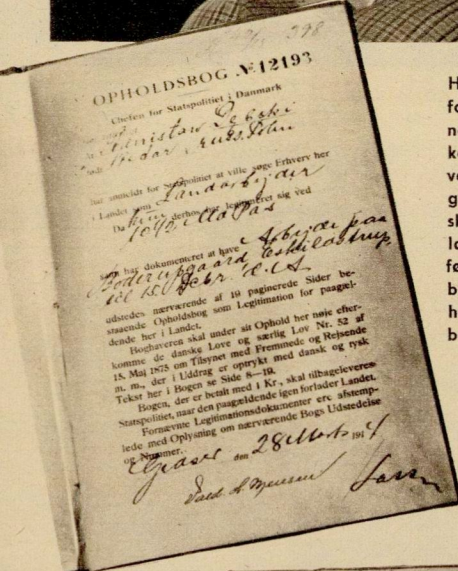 398
OPHOLDSBOG № 12193
Chefen for Statspolitiet i Danmark
Stanislaw
født
har anmeldt for Statspolitiet at ville søge Erhverv her
i Landet som Landarbejder
Da hun derhos har legitimeret sig ved
Pas
som har dokumenteret at have Arbejde paa
Boderupgaard Eskilstrup
til 15. Debr. d. A.
udstedes nærværende af 19 paginerede Sider be-
staaende Opholdsbog som Legitimation for paagæl-
dende her i Landet.
Boghaveren skal under sit Ophold her nøje efter-
komme de danske Love og særlig Lov Nr. 52 af
15. Maj 1875 om Tilsynet med Fremmede og Rejsende
m. m., der i Uddrag er optrykt med dansk og tysk
Tekst her i Bogen se Side 8—19.
Bogen, der er betalt med 1 Kr., skal tilbageleveres
Statspolitiet, naar den paagældende igen forlader Landet.
Fornævnte Legitimationsdokumenter ere afstemp-
lede med Oplysning om nærværende Bogs Udstedelse
og Nummer.
den 28 Marts 1914